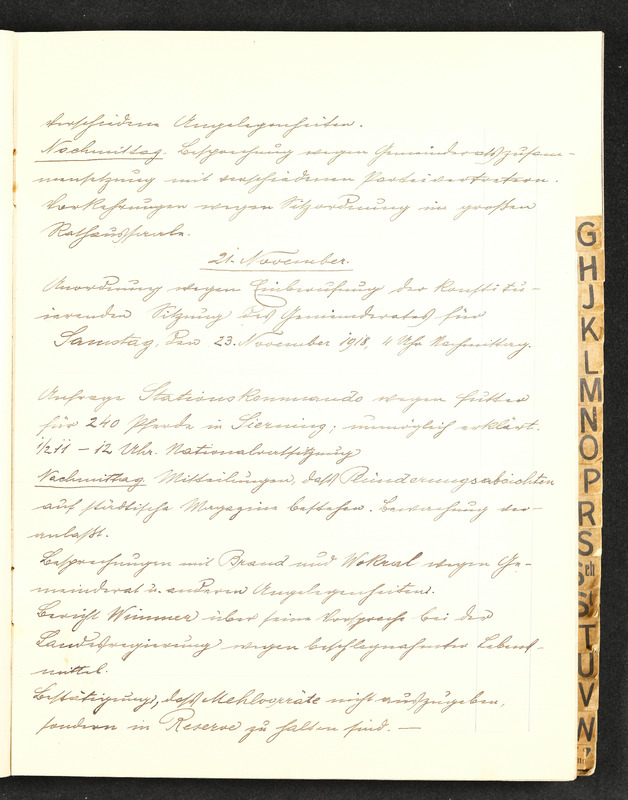 verschiedene Angelegenheiten.
Nachmittag. Besprechung wegen Gemeinderatszusam-
mensetzung mit verschiedenen Parteivertretern.
Vorkehrungen wegen Sitzordnung im großen
Rathaussaale.
21. November.
Anordnung wegen Einberufung der konstitu-
ierenden Sitzung des Gemeinderates für
Samstag, den 23. November 1918, 4 Uhr Nachmittag.
Anfrage Stationskommando wegen Futter
für 240 Pferde in Sierning; unmöglich erklärt.
1/2 11 - 12 Uhr. Nationalratssitzung
Nachmittag Mitteilungen, daß Plünderungsabsichten
auf städtische Magazine bestehen. Bewachung ver-
anlaßt.
Besprechungen mit Brand und Wokral wegen Ge-
meinderat u. anderen Angelegenheiten.
Bericht Wimmer über seine Vorsprache bei der
Landesregierung wegen beschlagnahmter Lebens-
mittel.
Bestätigung, daß Mehlvorräte nicht auszugeben,
sondern in Reserve zu halten sind. —
G
H
J
K
L
M
N
O
P
R
S
Sch
St
T
U
V
W